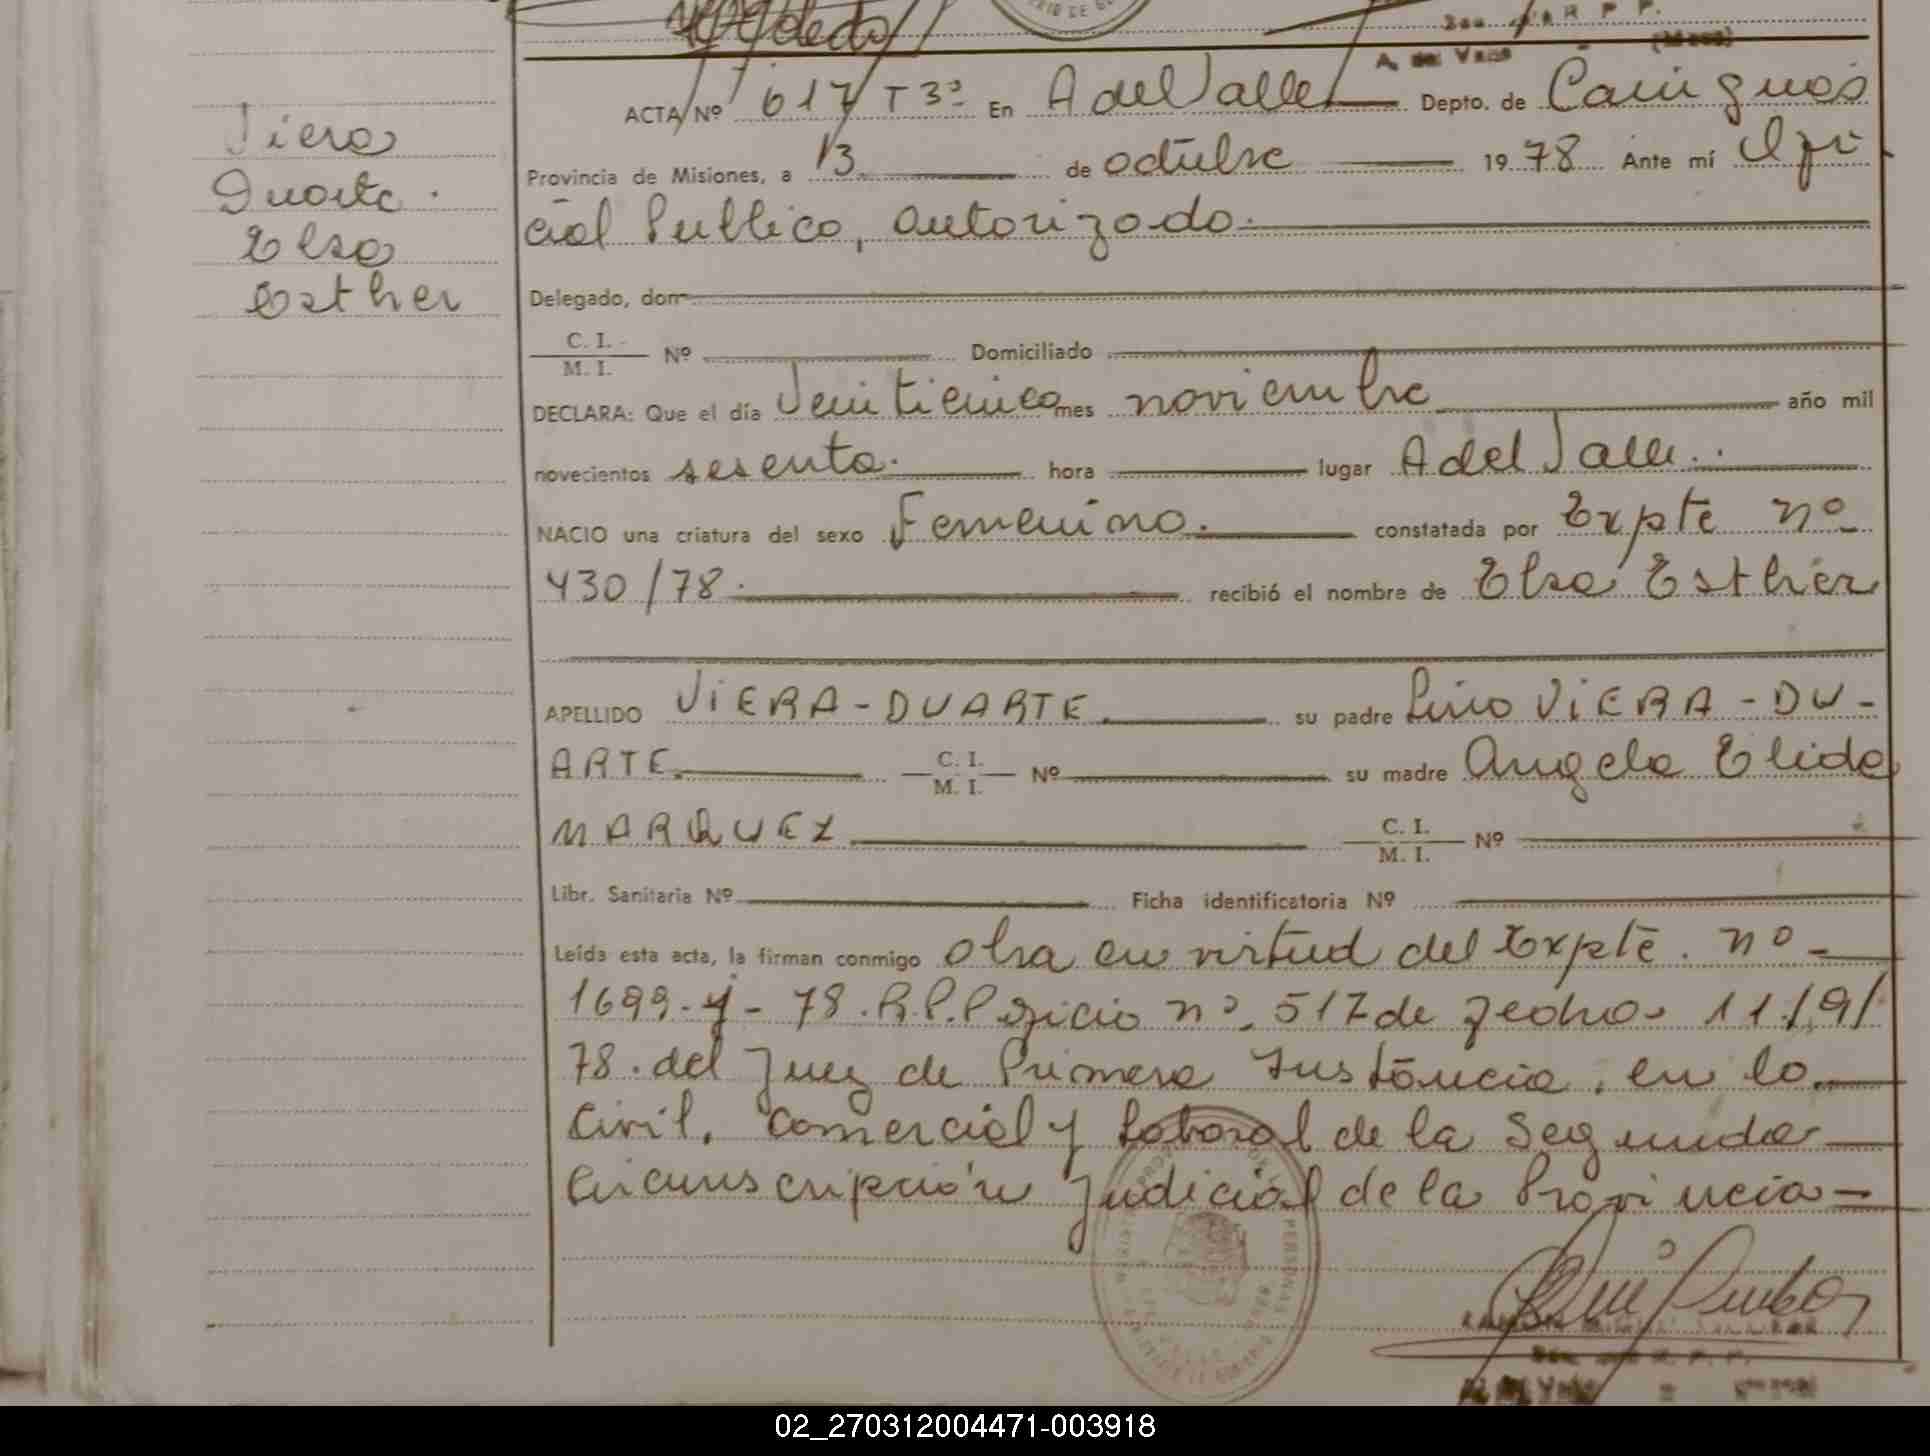 Viera
Duarte.
Elsa
Esther
ACTA Nº 617 T 3º En A del Valle Depto. de Cainguás
Provincia de Misiones, a 13 de octubre 19 78 Ante mí Ofi
cial Publico, autorizado.
Delegado, don
C. I.
M. I. Nº Domiciliado
DECLARA: Que el día Veinticinco mes noviembre año mil
novecientos sesenta. hora lugar A del Valle.
NACIO una criatura del sexo Femenino. constatada por Expte nº
430/78. recibió el nombre de Elsa Esther
APELLIDO VIERA-DUARTE su padre Lino VIERA-DU-
ARTE. C. I. M. I. Nº su madre Angela Elida
MARQUEZ C. I. M. I. Nº
Libr. Sanitaria Nº Ficha identificatoria Nº
Leída esta acta, la firman conmigo obra en virtud del Expte. nº
1699-y-78.R.P.P oficio nº. 517 de fecha 11/9/
78. del Juez de Primera Instancia, en lo
Civil, Comercial y Laboral de la Segunda
Circunscripción Judicial de la Provincia
02_270312004471-003918